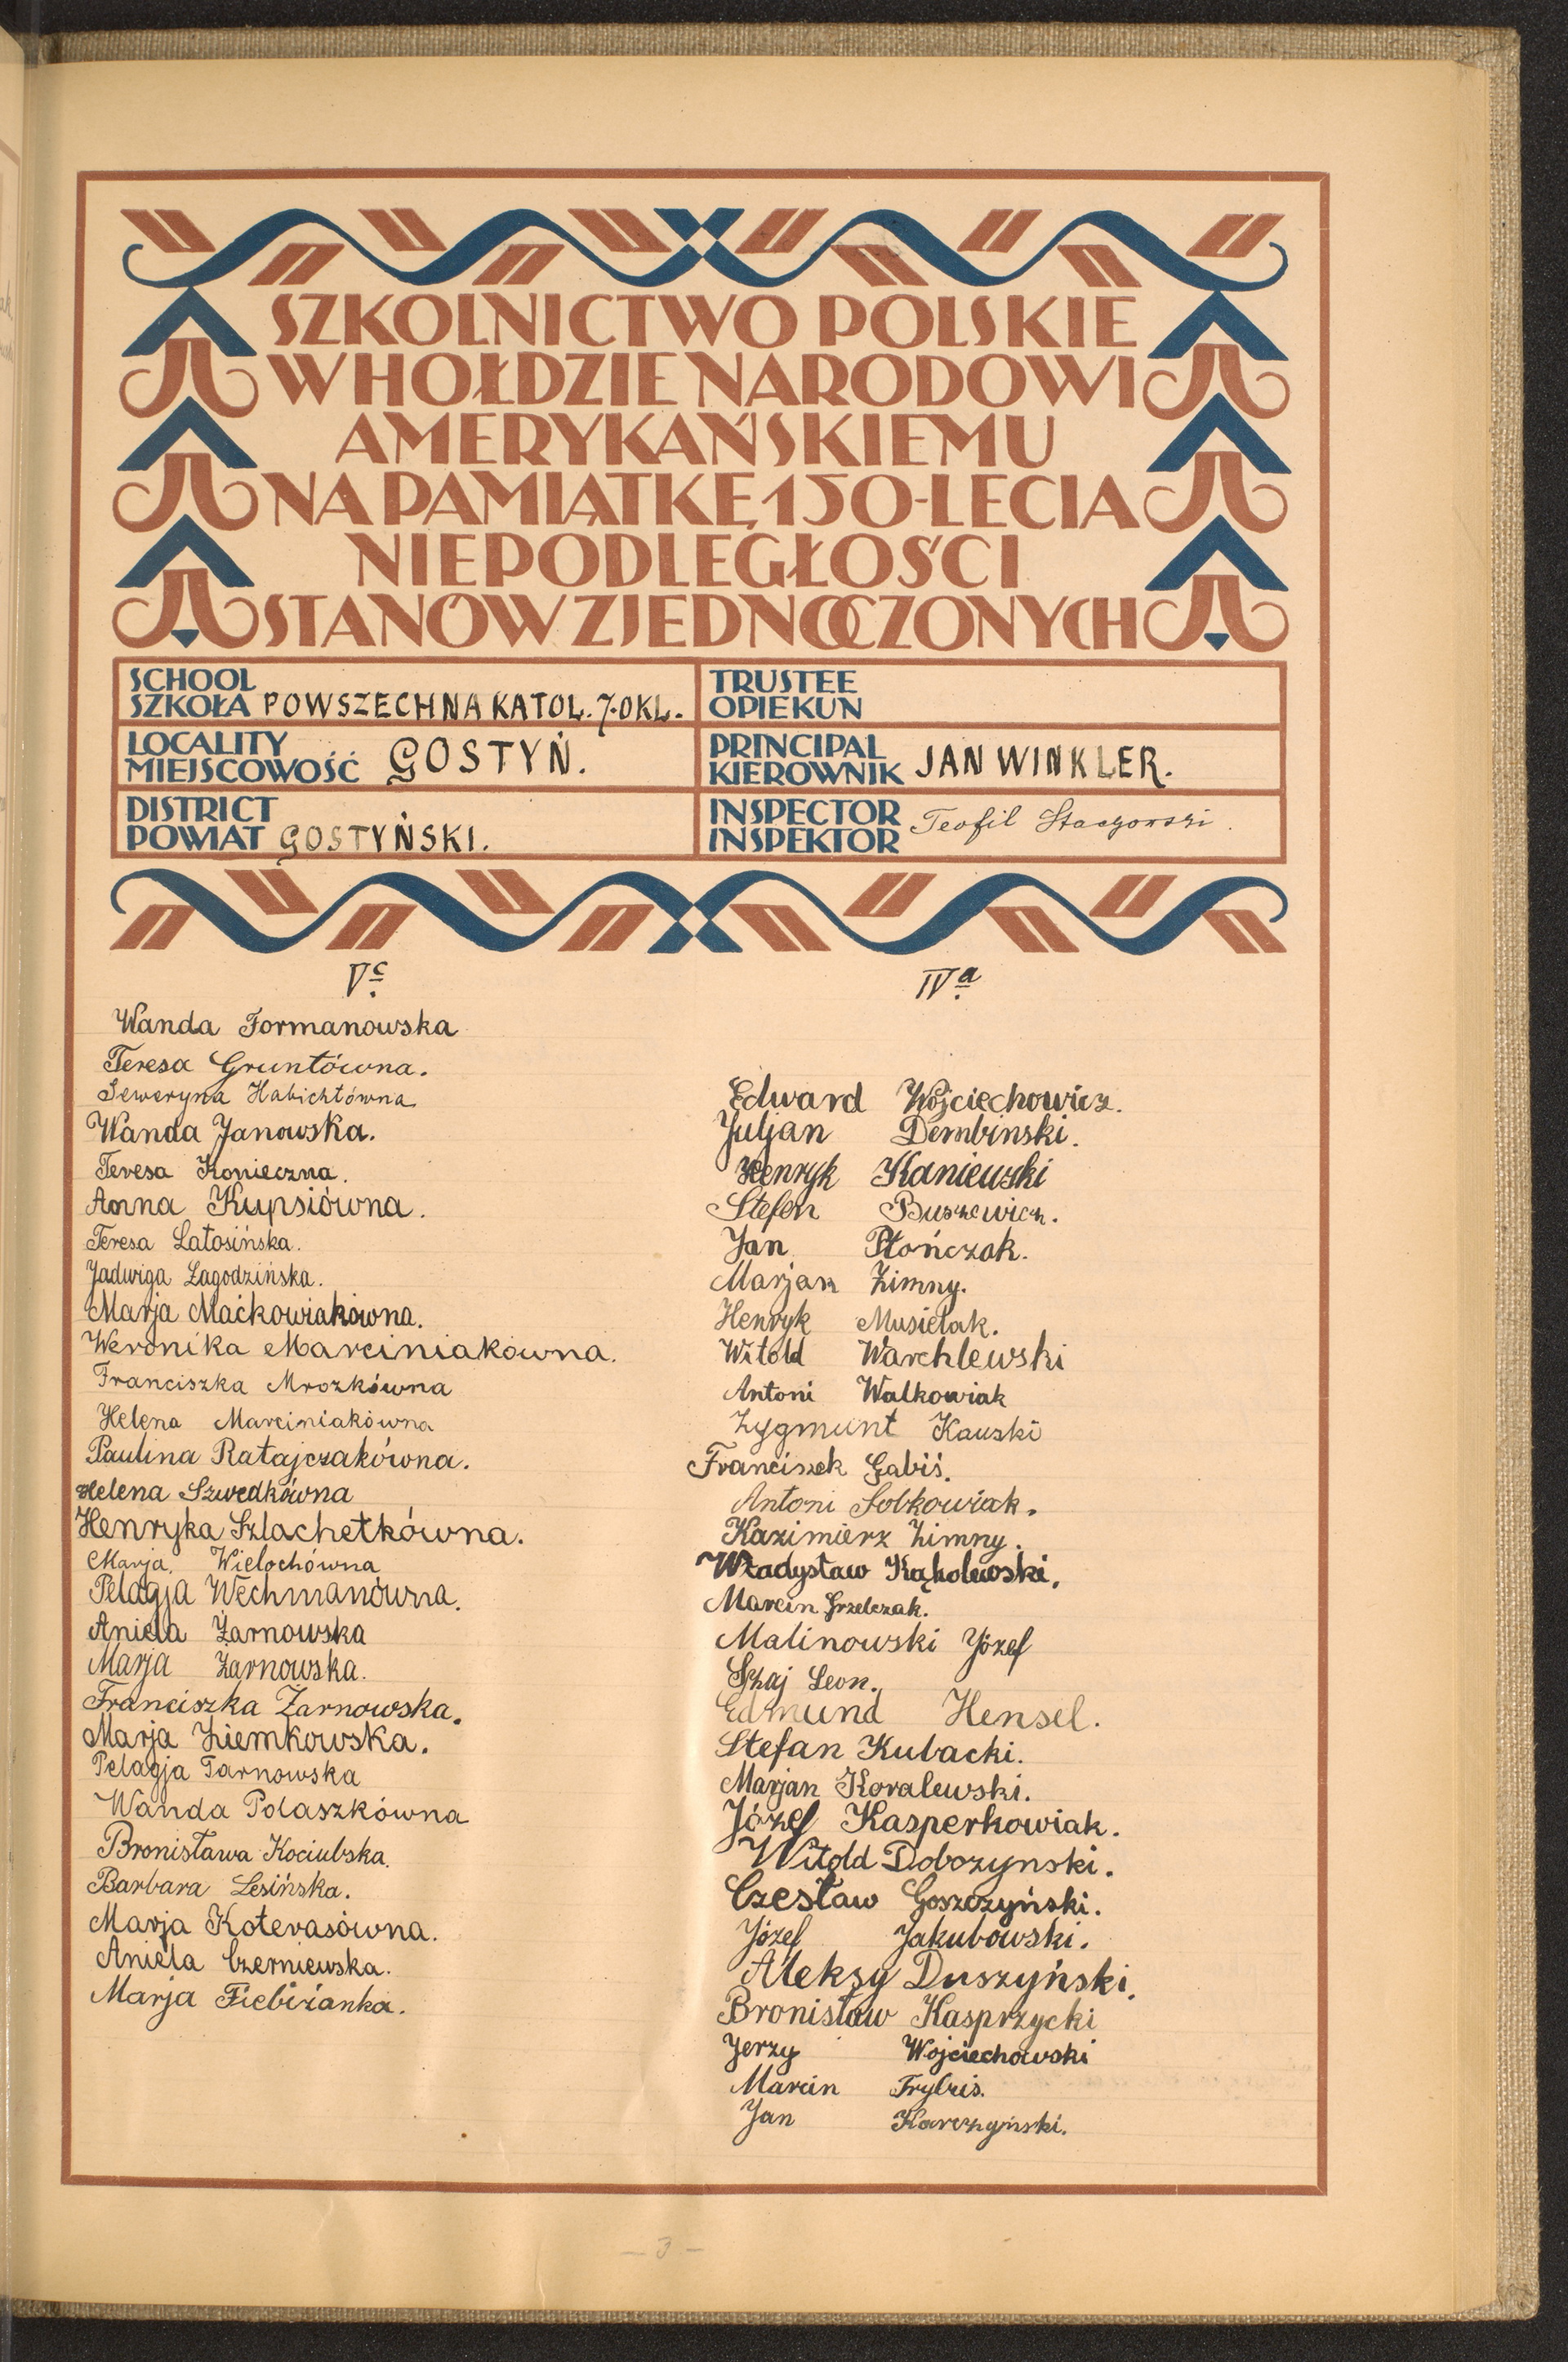 SZKOLNICTWO POLSKIE
W HOŁDZIE NARODOWI
AMERYKAŃSKIEMU
NA PAMIĄTKĘ 150-LECIA
NIEPODLEGŁOŚCI
STANÓW ZJEDNOCZONYCH
SCHOOL
SZKOŁA POWSZECHNA KATOL. 7-OKL.
TRUSTEE
OPIEKUN
LOCALITY
MIEJSCOWOŚĆ GOSTYŃ.
PRINCIPAL
KIEROWNIK JAN WINKLER.
DISTRICT
POWIAT GOSTYŃSKI.
INSPECTOR
INSPEKTOR Teofil
Vc.
Wanda Formanowska
Teresa Gruntówna.
Seweryna Habichtówna
Wanda Janowska.
Teresa Konieczna.
Anna Kupsiówna.
Teresa Latosińska.
Jadwiga Łagodzińska.
Marja Maćkowiakówna.
Weronika Marciniakówna.
Franciszka Mrozkówna
Helena Marciniakówna
Paulina Ratajczakówna.
Helena Szwedkówna
Henryka Szlachetkówna.
Marja Wielochówna
Pelagja Wechmanówna.
Aniela Żarnowska
Marja Żarnowska.
Franciszka Żarnowska.
Marja Ziemkowska.
Pelagja Tarnowska
Wanda Polaszkówna
Bronisława Kociubska.
Barbara Lesińska.
Marja Koterasówna.
Aniela Czerniewska.
Marja Fiebiżanka.
IVa.
Edward Wojciechowicz.
Juljan Dembinski.
Henryk Kaniewski
Stefan Buszewicz.
Jan Płończak.
Marjan Zimny.
Henryk Musielak.
Witold Warchlewski
Antoni Walkowiak
Zygmunt Kauski
Franciszek Gabiś.
Antoni Sobkowiak.
Kazimierz Zimny.
Władysław Kąkolewski.
Marcin Grzelczak.
Malinowski Józef
Szaj Leon.
Edmund Hensel.
Stefan Kubacki.
Marjan Kovalewski.
Józef Kasperkowiak.
Witold Dobczynski.
Czesław Goszczyński.
Józef Jakubowski.
Aleksy Duszyński.
Bronisław Kasprzycki
Jerzy Wojciechowski
Marcin Frybis.
Jan Karczyński.
- 3 -